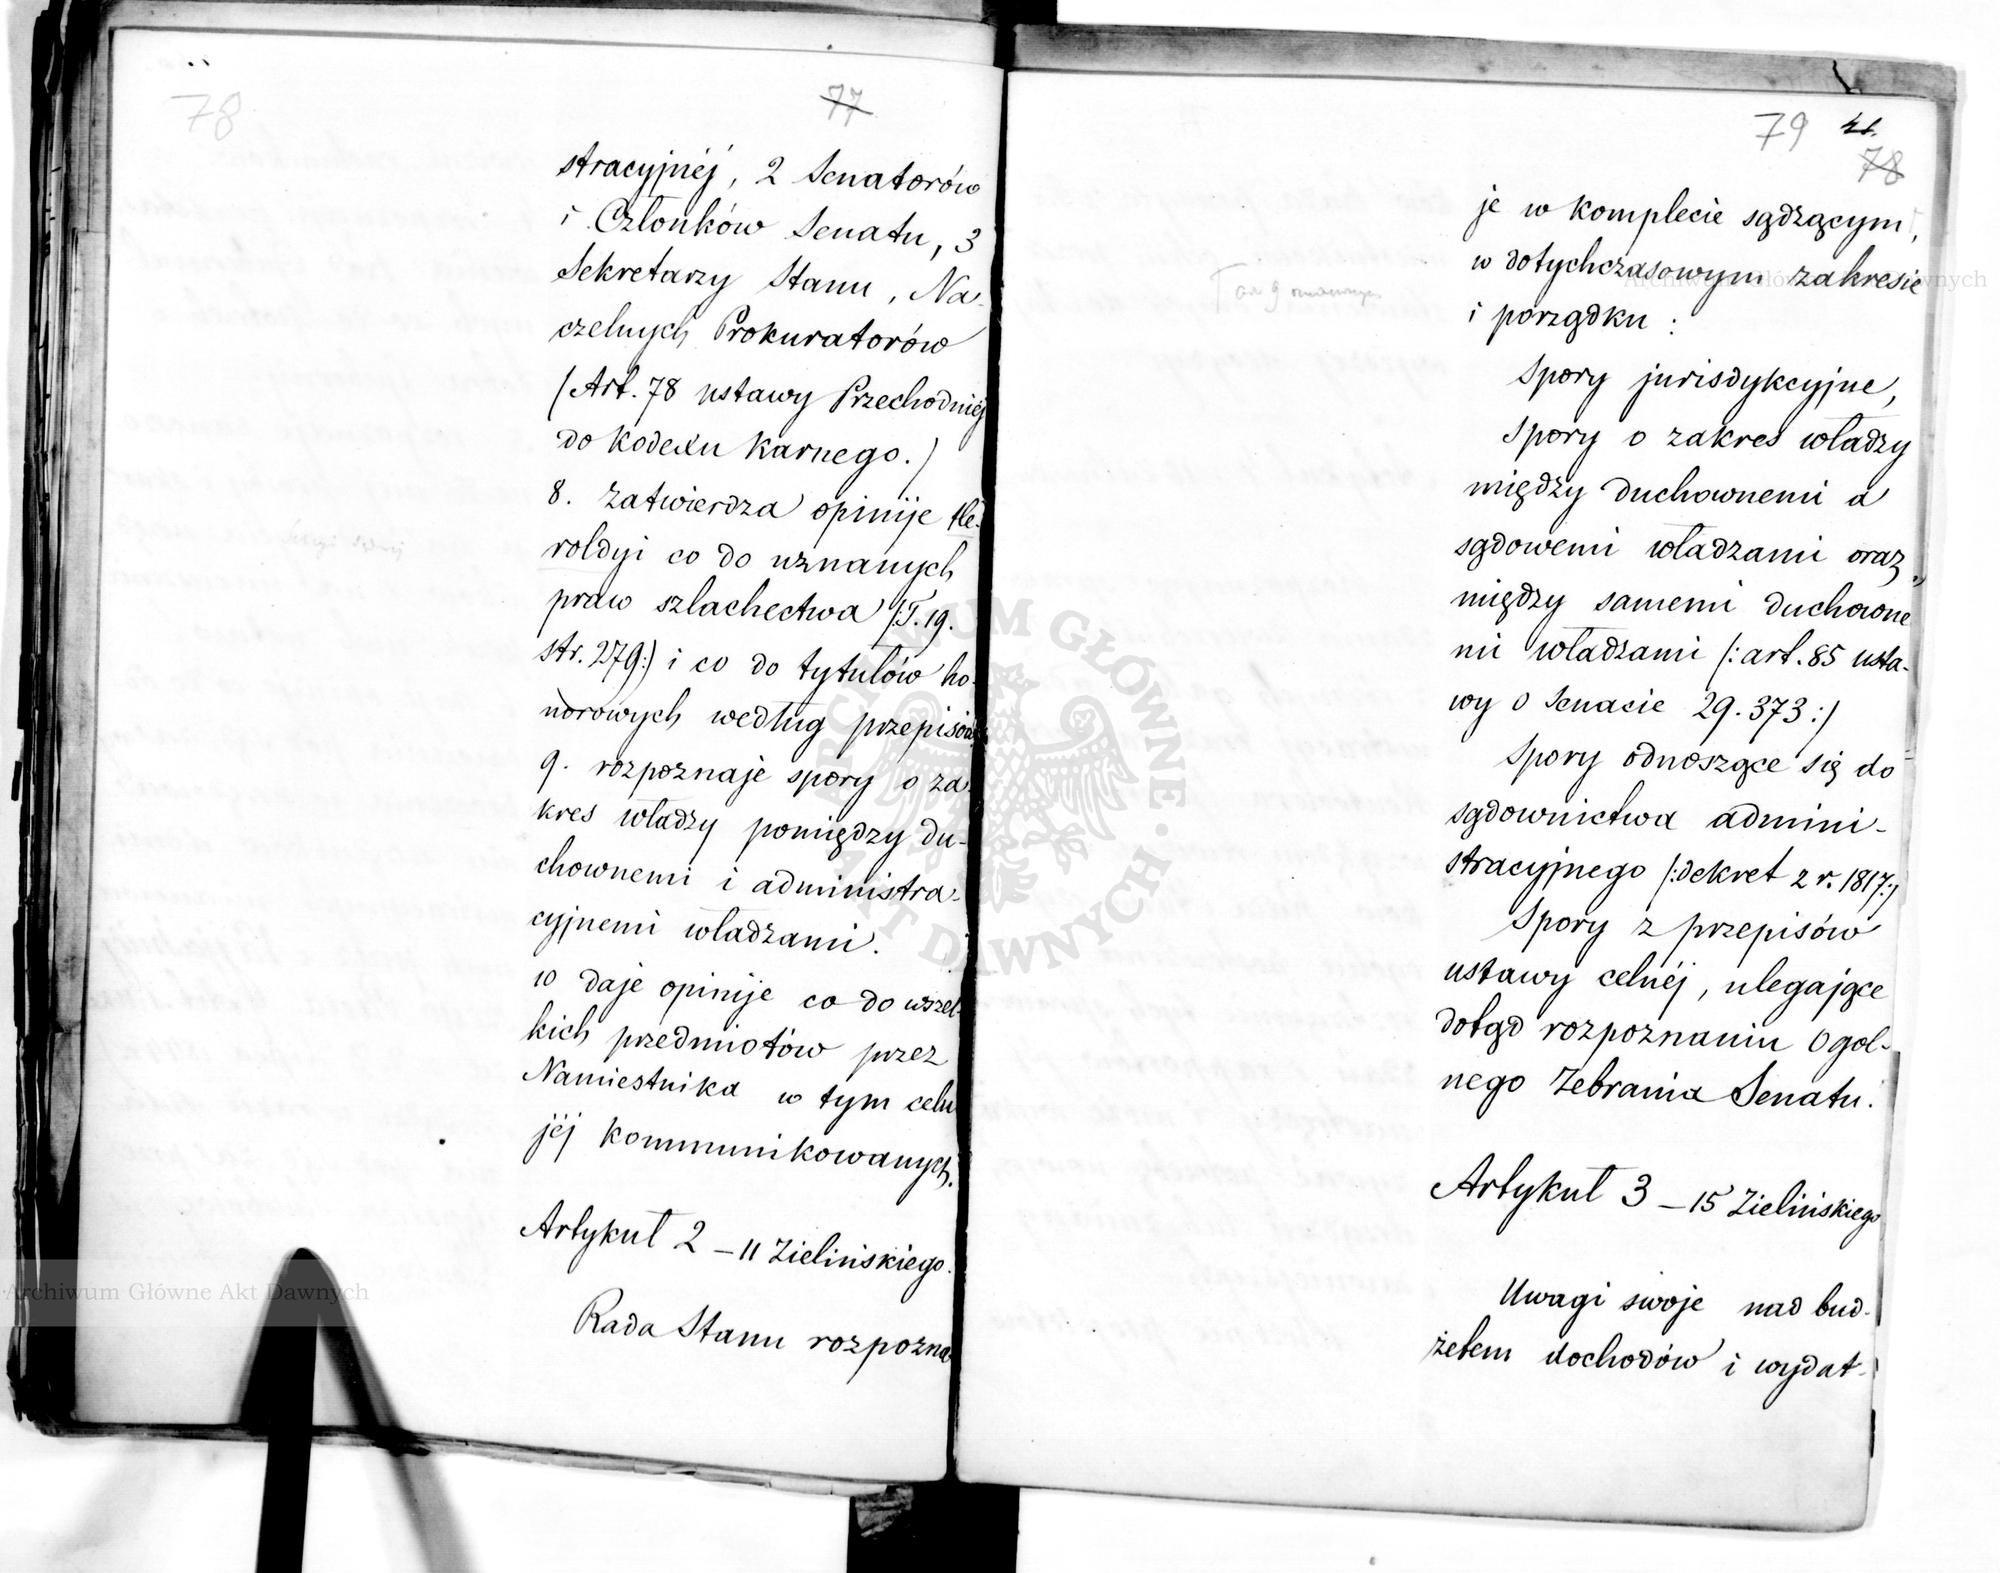 78
77
stracyjnéj, 2 Senatorów
i Członków Senatu, 3
Sekretarzy Stanu, Na-
czelnych Prokuratorów
(Art. 78 ustawy Przechodniéj
do Kodexu Karnego.)
8. zatwierdza opinije He-
roldyi co do uznanych
praw szlachectwa (:T. 19.
str. 279:) i co do tytułów ho-
norowych według przepisów
9. rozpoznaje spory o za-
kres władzy pomiędzy du-
chownemi i administra-
cyjnemi władzami.
10 daje opinije co do wszel-
kich przedmiotów przez
Namiestnika w tym celu
jéj kommunikowanych.
Artykuł 2 – 11 Zielińskiego.
Rada Stanu rozpozna-
79
78
je w komplecie sądzącym,
w dotychczasowym zakresie
i porządku :
Spory jurisdykcyjne,
Spory o zakres władzy
między duchownemi a
sądowemi władzami oraz
między samemi duchowne
mi władzami (:art. 85 usta-
wy o Senacie 29. 373:)
Spory odnoszące się do
sądownictwa admini-
stracyjnego (:dekret z r. 1817:)
Spory z przepisów
ustawy celnéj, ulegające
dotąd rozpoznaniu Ogól-
nego Zebrania Senatu.
Artykuł 3 – 15 Zielińskiego
Uwagi swoje nad bud-
żetem dochodów i wydat-
ARCHIWUM GŁÓWNE AKT DAWNYCH
Archiwum Główne Akt Dawnych
Archiwum Główne Akt Dawnych